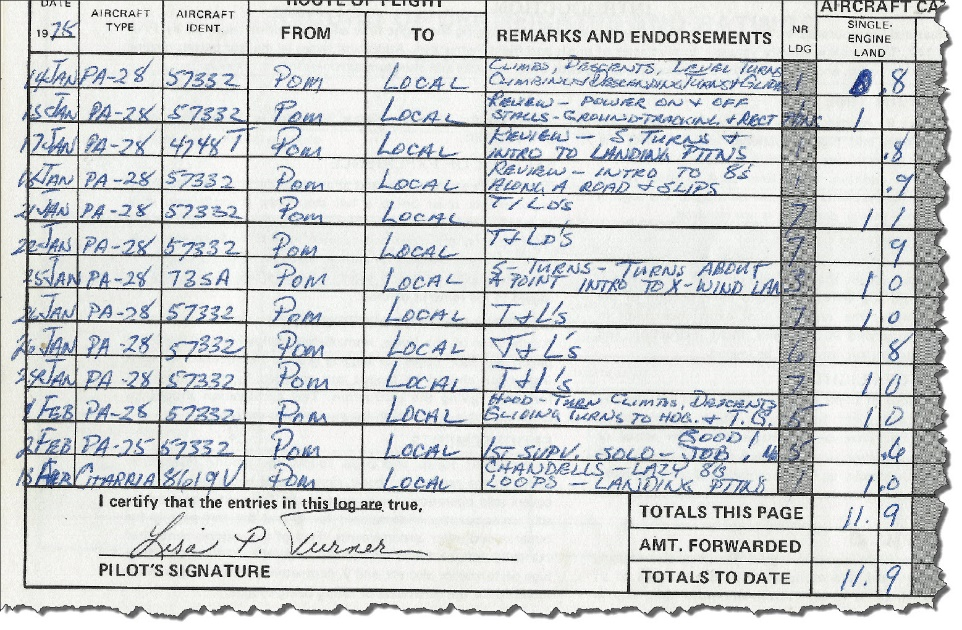 DATE AIRCRAFT TYPE AIRCRAFT IDENT. ROUTE OF FLIGHT REMARKS AND ENDORSEMENTS NR LDG AIRCRAFT CA
1975 FROM TO SINGLE-ENGINE LAND
14 JAN PA-28 57332 POM LOCAL CLIMBS, DESCENTS, LEVEL TURNS 1 .8
CLIMBING & DESCENDING TURNS & GLIDES
15 JAN PA-28 57332 POM LOCAL REVIEW - POWER ON & OFF 1
STALLS - GROUND TRACKING & RECT PTTNS
17 JAN PA-28 4748T POM LOCAL REVIEW - S. TURNS & .8
INTRO TO LANDING PTTNS
18 JAN PA-28 57332 POM LOCAL REVIEW - INTRO TO 8S .9
ALONG A ROAD & SLIPS
21 JAN PA-28 57332 POM LOCAL T/LD'S 7 1 1
22 JAN PA-28 57332 POM LOCAL T&LD'S 7 9
25 JAN PA-28 735A POM LOCAL S-TURNS - TURNS ABOUT 3 1 0
A POINT INTRO TO X-WIND LAN
26 JAN PA-28 57332 POM LOCAL T&L'S 7 1 0
26 JAN PA-28 57332 POM LOCAL T&L'S 6 8
JAN PA-28 57332 POM LOCAL T&L'S 7 1 0
1 FEB PA-28 57332 POM LOCAL HOOD - TURN CLIMBS, DESCENTS 5 1 0
GLIDING TURNS TO HDG. & T.G.
GOOD!
2 FEB PA-25 57332 POM LOCAL 1ST SUPV. SOLO - JOB, 5 .6
13 FEB CITABRIA 8619V POM LOCAL CHANDELLS - LAZY 8S 1 1.0
LOOPS - LANDING PTTNS
I certify that the entries in this log are true, TOTALS THIS PAGE 11.9
Lisa P. Turner AMT. FORWARDED
PILOT'S SIGNATURE TOTALS TO DATE 11.9